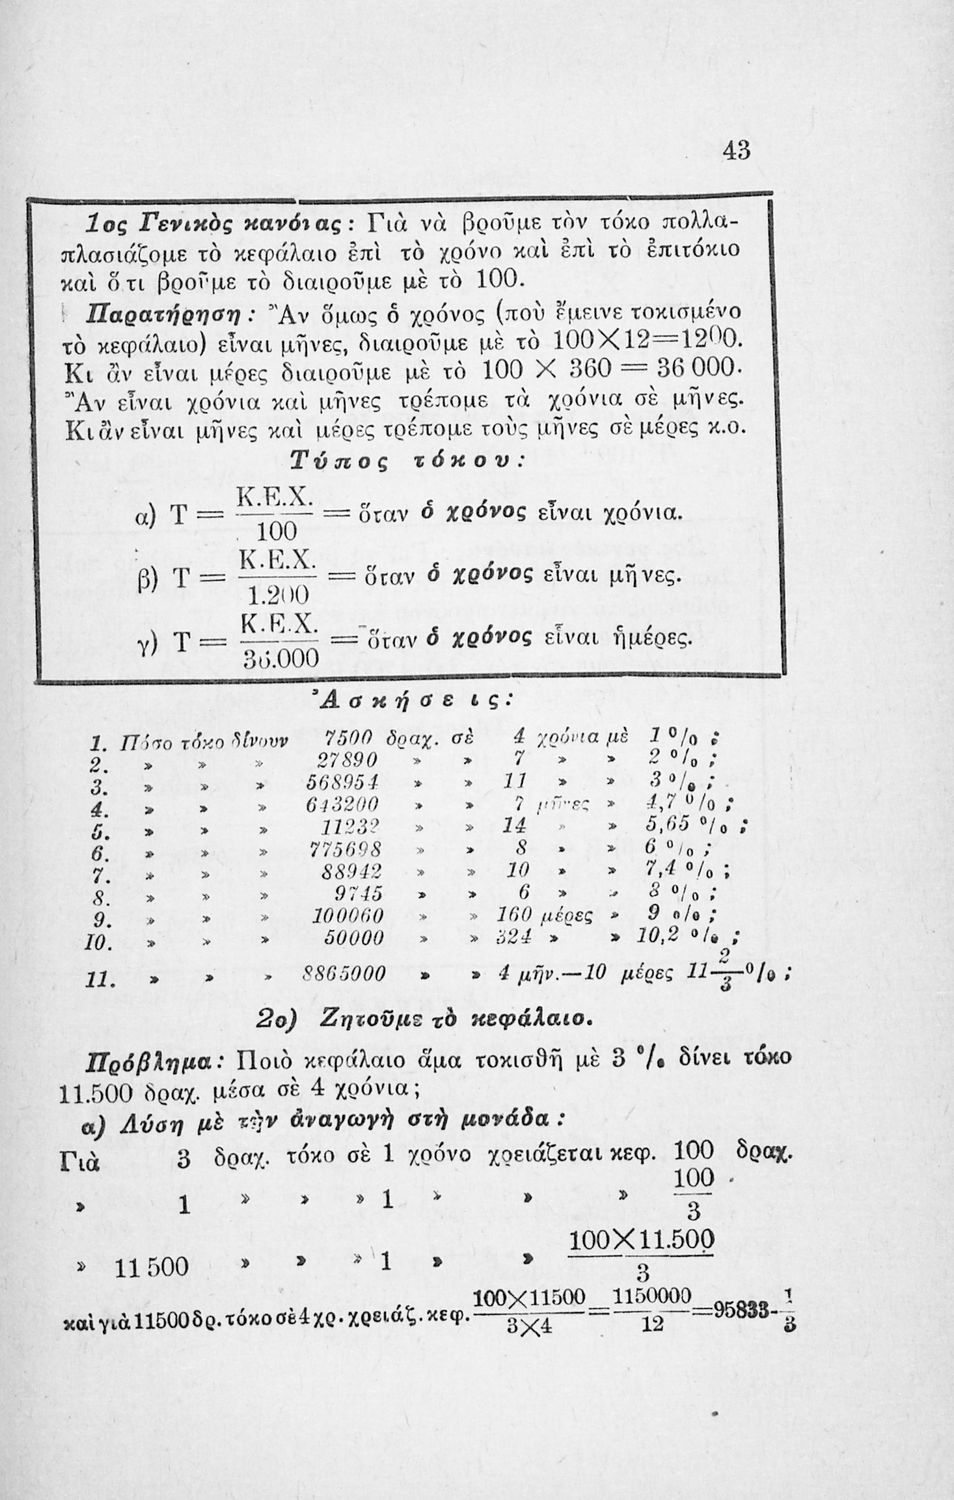 43
1ος Γενικὸς κανόνας: Γιὰ νὰ βροῦμε τὸν τόκο πολλα-
πλασιάζομε τὸ κεφάλαιο ἐπὶ τὸ χρόνο καὶ ἐπὶ τὸ ἐπιτόκιο
καὶ ὅ,τι βροῦμε τὸ διαιροῦμε μὲ τὸ 100.
Παρατήρηση: Ἂν ὅμως ὁ χρόνος (ποὺ ἔμεινε τοκισμένο
τὸ κεφάλαιο) εἶναι μῆνες, διαιροῦμε μὲ τὸ 100×12=1200.
Κι ἂν εἶναι μέρες διαιροῦμε μὲ τὸ 100 × 360 = 36 000.
Ἂν εἶναι χρόνια καὶ μῆνες τρέπομε τὰ χρόνια σὲ μῆνες.
Κι ἂν εἶναι μῆνες καὶ μέρες τρέπομε τοὺς μῆνες σὲ μέρες κ.ο.
Τύπος τόκου:
α) Τ = Κ.Ε.Χ. / 100 = ὅταν ὁ χρόνος εἶναι χρόνια.
β) Τ = Κ.Ε.Χ. / 1.200 = ὅταν ὁ χρόνος εἶναι μῆνες.
γ) Τ = Κ.Ε.Χ. / 36.000 = ὅταν ὁ χρόνος εἶναι ἡμέρες.
Ἀσκήσεις:
1. Πόσο τόκο δίνουν 7500 δραχ. σὲ 4 χρόνια μὲ 1 %;
2. » » » 27890 » » 7 » » 2 %;
3. » » » 568954 » » 11 » » 3 %;
4. » » » 643200 » » 7 μῆνες » 4,7 %;
5. » » » 11232 » » 14 » » 5,65 %;
6. » » » 775698 » » 8 » » 6 %;
7. » » » 88942 » » 10 » » 7,4 %;
8. » » » 9745 » » 6 » » 8 %;
9. » » » 100060 » » 160 μέρες » 9 %;
10. » » » 50000 » » 324 » » 10,2 %;
11. » » » 8865000 » » 4 μῆν.—10 μέρες 11 2/3 %;
2ο) Ζητοῦμε τὸ κεφάλαιο.
Πρόβλημα: Ποιὸ κεφάλαιο ἅμα τοκισθῆ μὲ 3 % δίνει τόκο
11.500 δραχ. μέσα σὲ 4 χρόνια;
α) Λύση μὲ τὴν ἀναγωγὴ στὴ μονάδα:
Γιὰ 3 δραχ. τόκο σὲ 1 χρόνο χρειάζεται κεφ. 100 δραχ.
» 1 » » » 1 » » » 100 / 3
» 11 500 » » » 1 » » 100×11.500 / 3
καὶ γιὰ 11500 δρ. τόκο σὲ 4 χρ. χρειάζ. κεφ. 100×11500 / 3×4 = 1150000 / 12 = 95833- 1/3